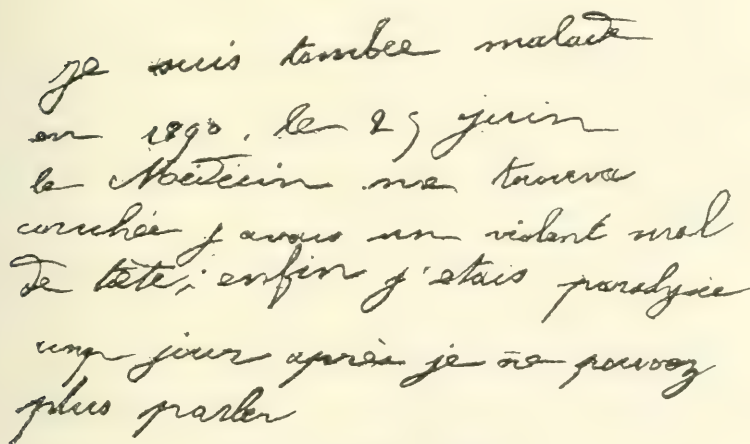 je suis tombée malade
en 1890. le 25 juin
le Médecin me trouva
couchée j avais un violent mal
de tète; enfin j'etais paralysie
un jour après je ne pouvoz
plus parler